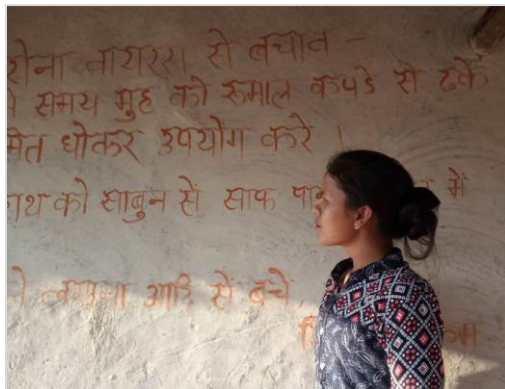 रोना वायरस से बचाव -
समय मुह को रूमाल कपडे से ढकें
मित धोकर उपयोंग करे ।
हाथ को साबुन सें साफ में
लगाना आदि से बचे,